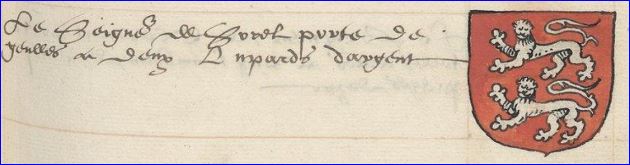 Le Seigneur de Sorel porte de
geulles a deux Lupards dargent